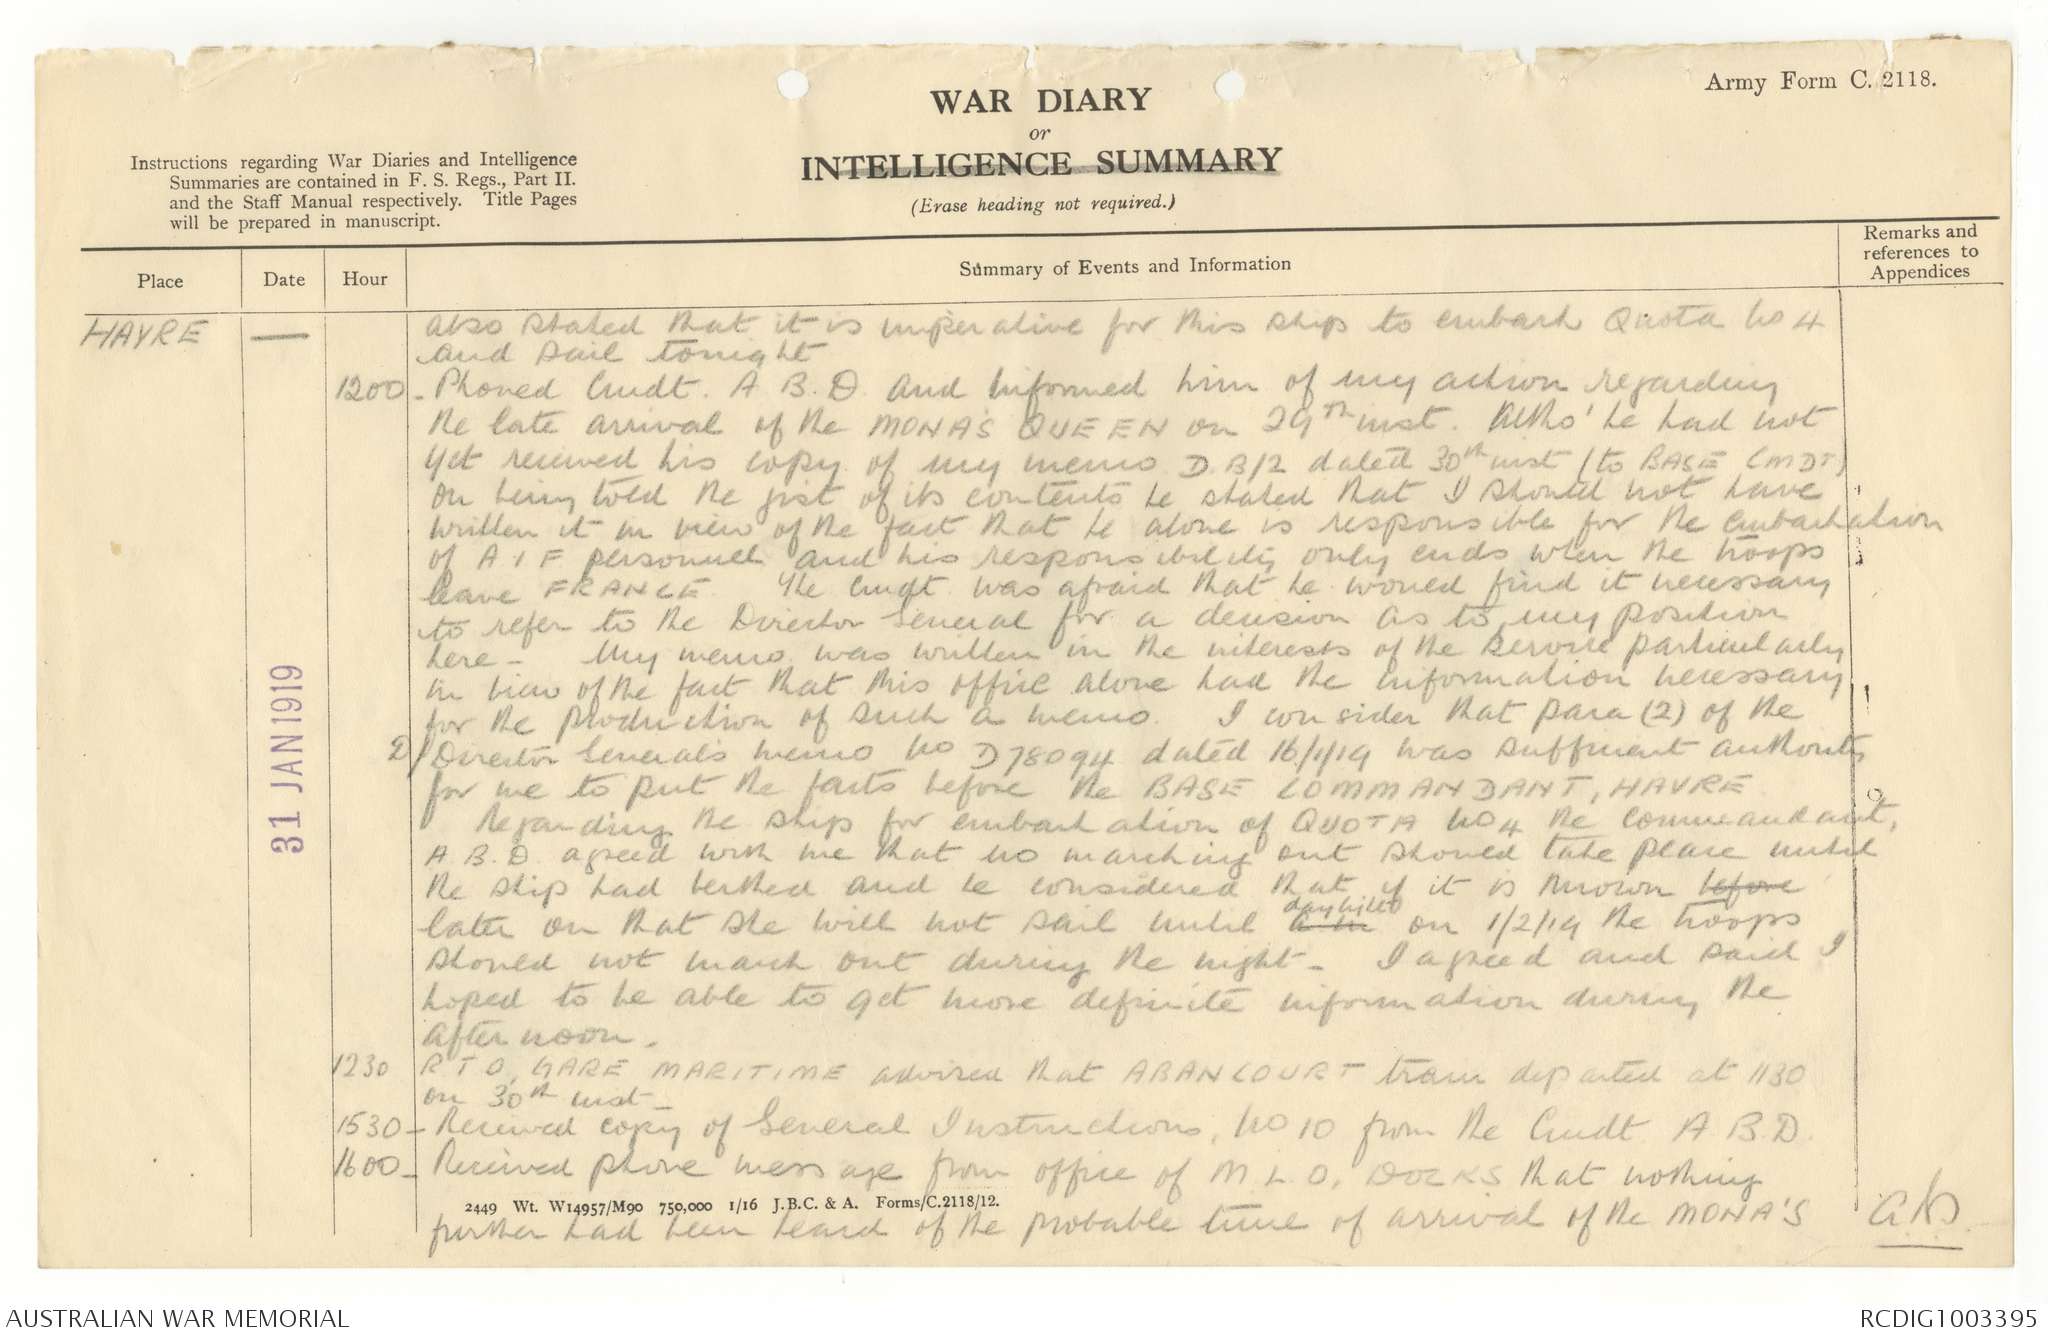 Army Form C. 2118.
WAR DIARY
or
INTELLIGENCE SUMMARY
(Erase heading not required.)
Instructions regarding War Diaries and Intelligence
Summaries are contained in F. S. Regs., Part II.
and the Staff Manual respectively. Title Pages
will be prepared in manuscript.
Place
Date
Hour
Summary of Events and Information
Remarks and
references to
Appendices
HAVRE
31 JAN 1919
also stated that it is imperative for this ship to embark Quota No 4
and sail tonight
1200 - Phoned Cmdt. A B. D. and informed him of my action regarding
the late arrival of the MONA'S QUEEN on 29th inst. Altho' he had not
yet received his copy of my memo D.B/2 dated 30th inst (to BASE CMDT)
on being told the gist of its contents he stated that I should not have
written it in view of the fact that he alone is responsible for the embarkation
of A I F personnel and his responsibility only ends when the troops
leave FRANCE. The Cmdt was afraid that he would find it necessary
to refer to the Director General for a decision as to my position
here - My memo was written in the interests of the service particularly
in view of the fact that this office alone had the information necessary
for the production of such a memo. I consider that para (2) of the
D/ Director General's memo No D78094 dated 16/1/19 was sufficient authority
for me to put the facts before the BASE COMMANDANT, HAVRE
Regarding the ship for embarkation of QUOTA No 4 the Commandant,
A.B.D. agreed with me that no marching out should take place until
the ship had berthed and he considered that if it is known before
later on that she will not sail until a m daylight on 1/2/19 the troops
should not march out during the night - I agreed and said I
hoped to be able to get more definite information during the
afternoon.
1230 R T O, GARE MARITIME advised that ABANCOURT train departed at 1130
on 30th inst -
1530 - Received copy of General Instructions, No 10 from the Cmdt A B.D.
1600 - Received phone message from office of M. L. O, DOCKS that nothing
2449 Wt. W14957/M90 750,000 1/16 J.B.C. & A. Forms/C.2118/12.
further had been heard of the probable time of arrival of the MONA'S
AUSTRALIAN WAR MEMORIAL
RCDIG1003395